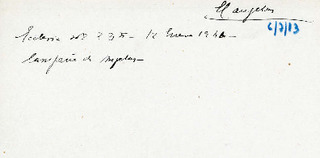 El angelus
6/7/13
Ecclesia nº 235 - 12 Enero 1946 -
Campaña de Angelus -